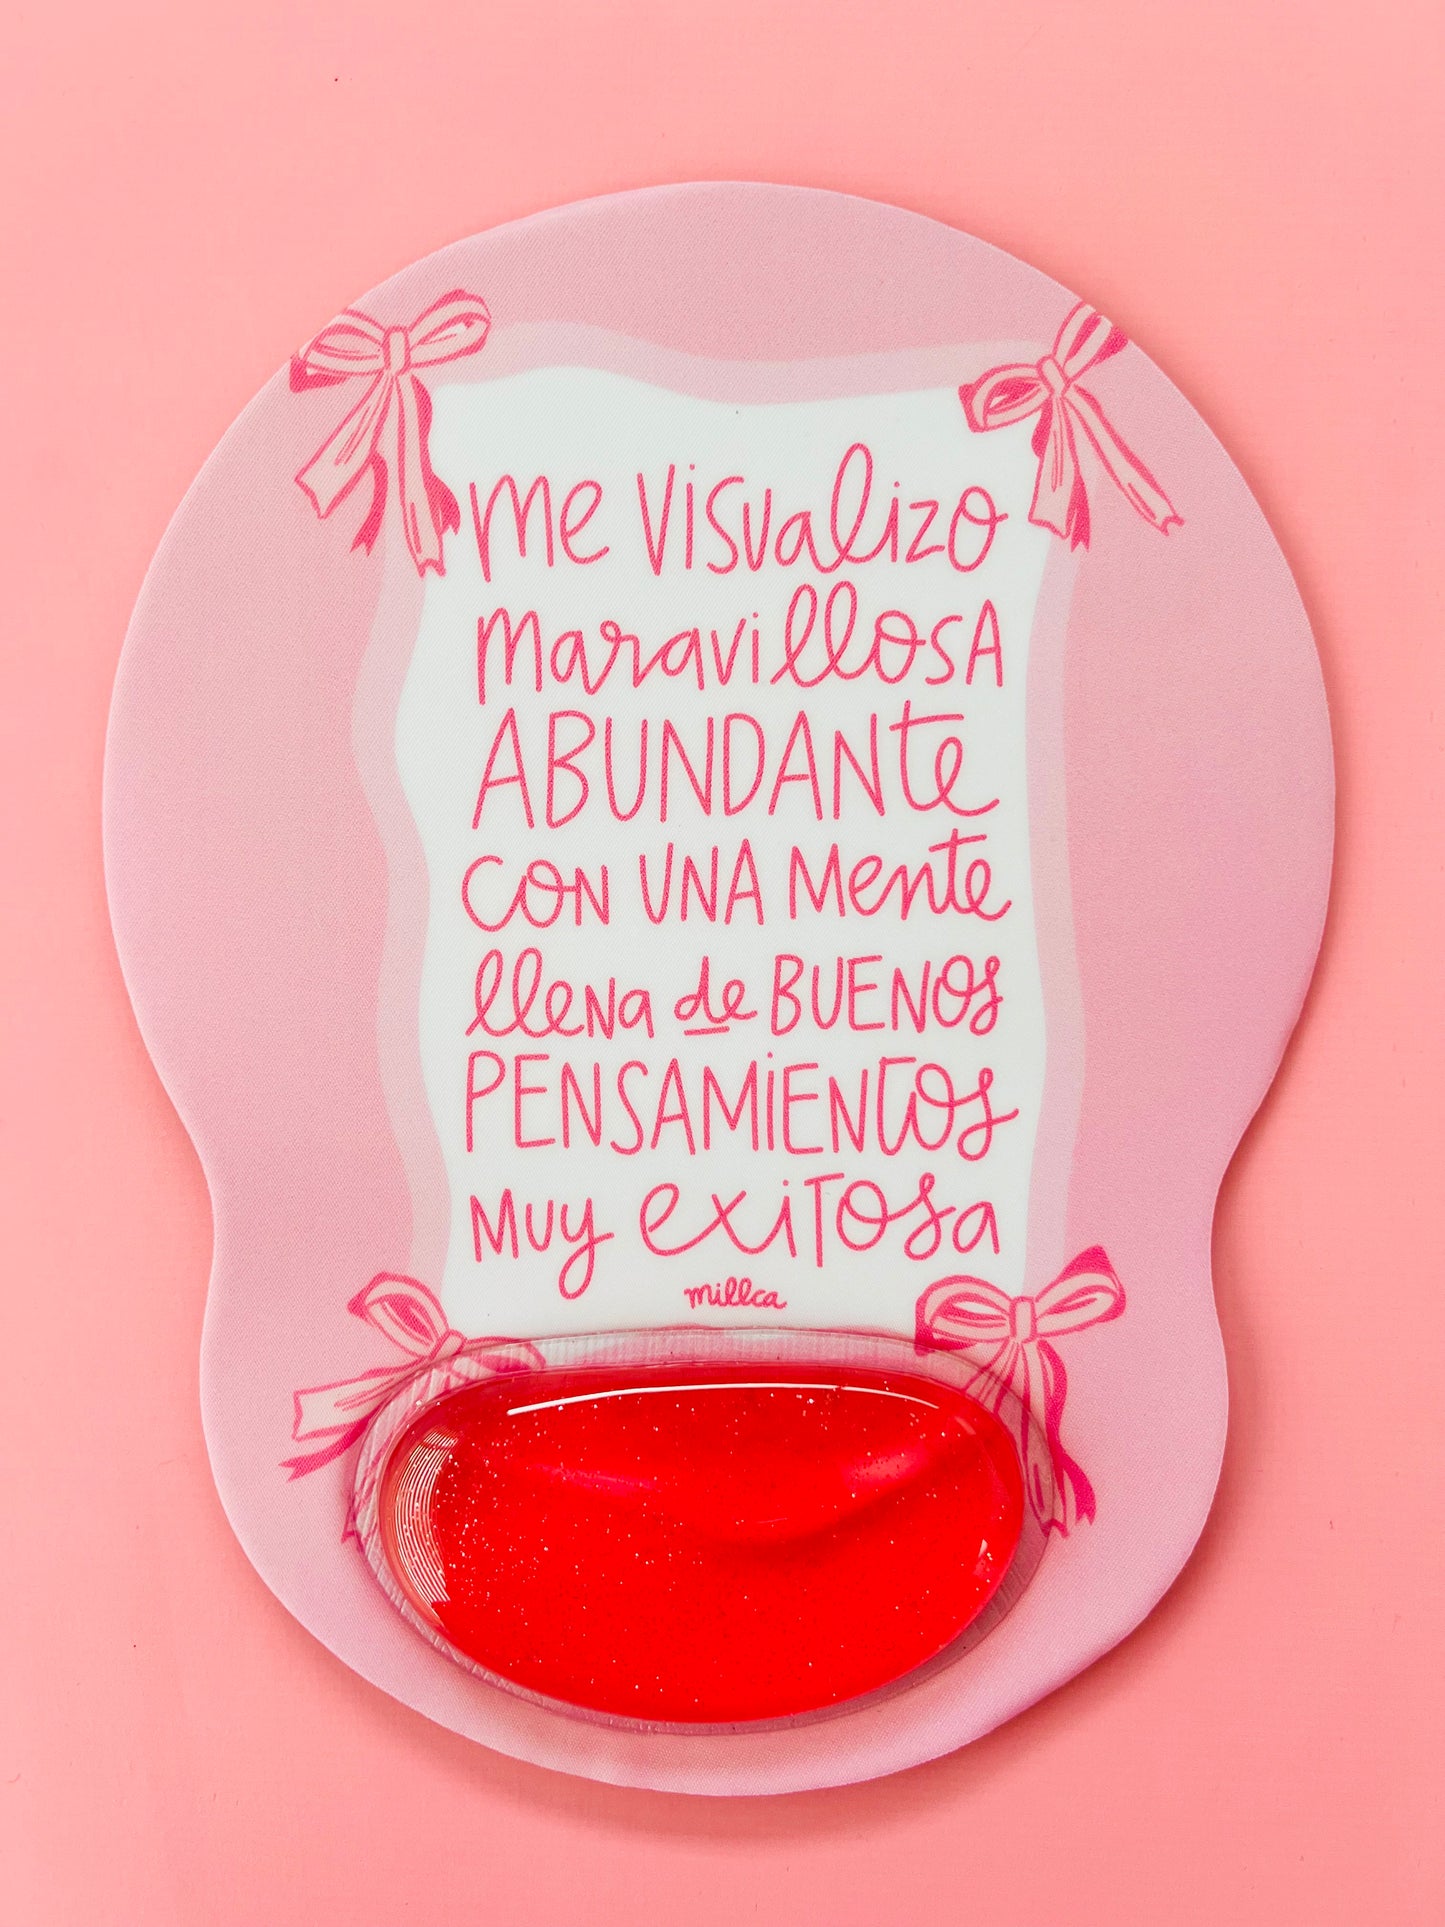 Me visualizo
maravillosa
ABUNDANte
CON UNA Mente
lleNa de BUENOS
PENSAMiENTOS
MUY exiTosa
millca